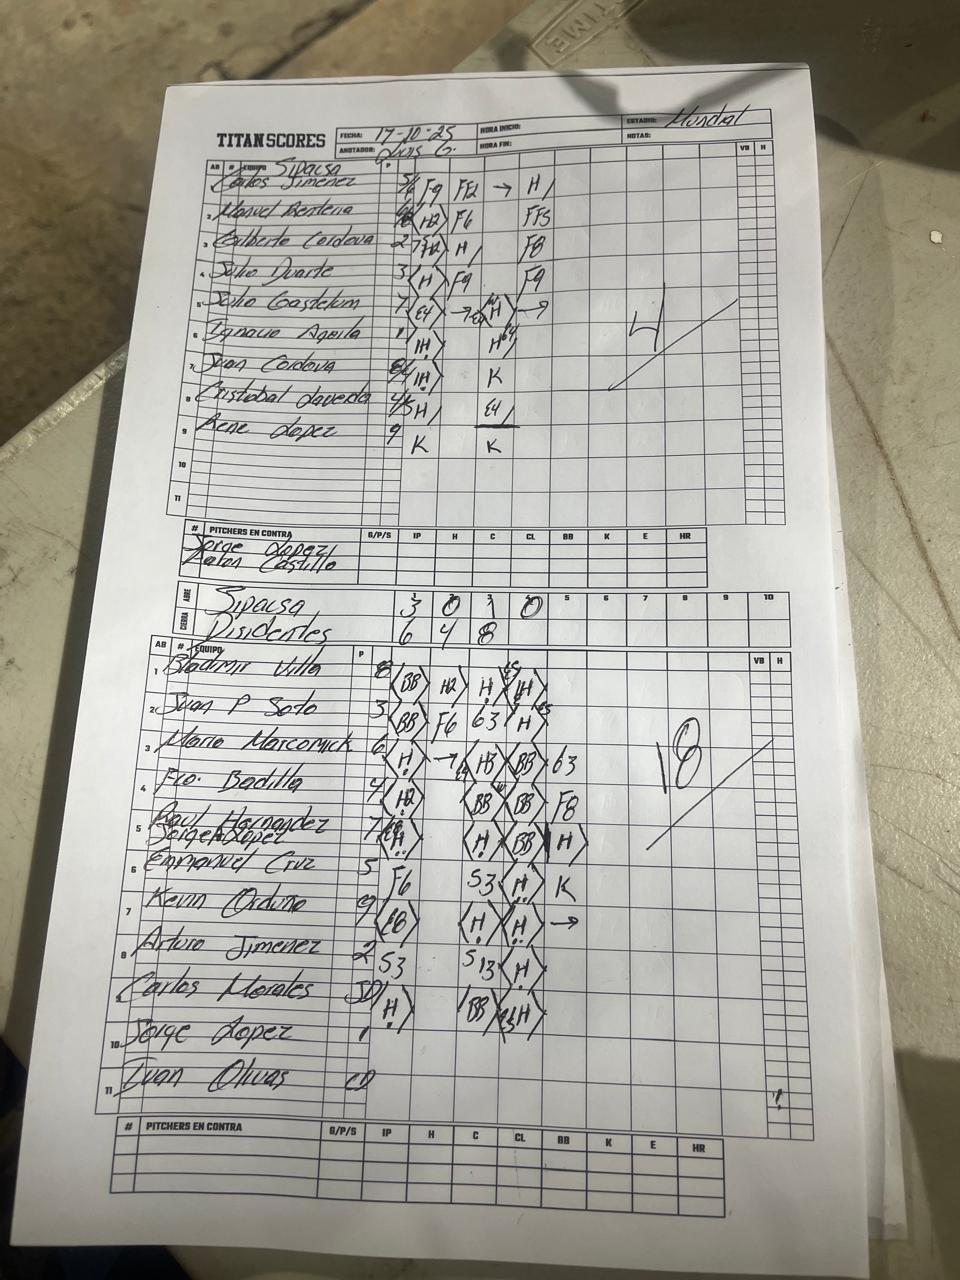 TIME
TITANSCORES FECHA: 17-10-25 HORA INICIO: ESTADIO: Mundial
ANOTADOR: Luis G. HORA FIN: NOTAS:
AB # EQUIPO Sipacsa P VB H
Carlos Jimenez F9 FF2 → H
2 Manuel Renteria H2 F6 FF5
3 Gilberto Cordova H2 H F8
4 Julio Duarte 3 H F9 F9
5 Julio Gastelum 7 E4 → H →
6 Ignacio Aguila 1 H H 64
7 Juan Cordova H K
8 Cristobal Laveida H E4
9 Rene Lopez 9 K K
10
11
4
# PITCHERS EN CONTRA G/P/S IP H C CL BB K E HR
Jorge Lopez
Aaron Castillo
ABRE Sipacsa 3 0 1 0 5 6 7 8 9 10
CIERRA Disidentes 6 4 8
AB # EQUIPO P VB H
1 Bladimir Villa 8 BB H2 H H
2 Juan P Soto 3 BB F6 63 H
3 Mario Marcomick 6 H → H3 BB 63
4 Fco. Badilla 4 H2 BB BB F8
5 Raul Hernandez 7 H H BB H
Jorge Lopez
6 Emmanuel Cruz 5 F6 53 H K
7 Kevin Orduño 9 E8 H H →
8 Arturo Jimenez 2 53 513 H
9 Carlos Morales H BB H
10 Jorge Lopez 1
11 Ivan Olivas
18
# PITCHERS EN CONTRA G/P/S IP H C CL BB K E HR